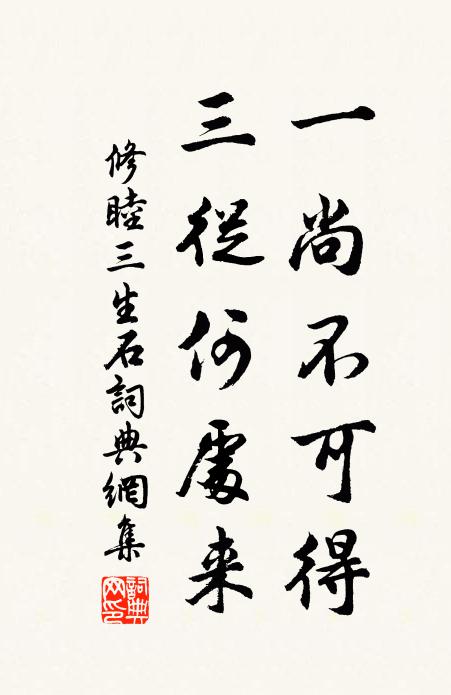 一尚不可得
三從何處来
修睦三生石詞典網集
詞典
网印